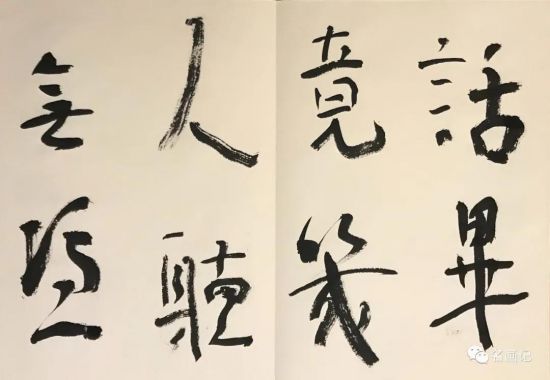 話畢
竟幾
人聽
無
名画记